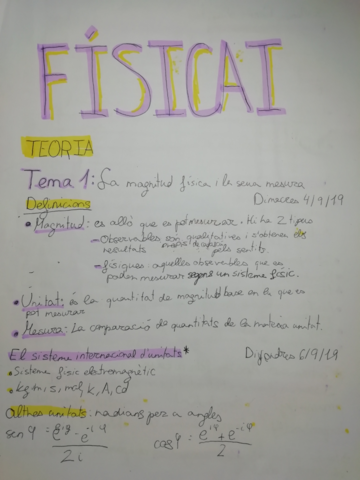 FÍSICA I
TEORIA
Tema 1: La magnitud física i la seva mesura
Definicions Dimecres 4/9/19
• Magnitud: és allò que es pot mesurar. Hi ha 2 tipus
Observables són qualitatives i s'obtenen els
resultats pels sentits.
físiques: aquelles observables que es
poden mesurar segons un sistema físic.
• Unitat: és la quantitat de magnitud base en la que es
pot mesurar
• Mesura: La comparació de quantitats de la mateixa unitat.
El sistema internacional d'unitats* Divendres 6/9/19
• Sistema físic eletromagnètic
• kg, m, s, mol, K, A, cd
Altres unitats: radians per a angles
sen φ = e^iφ - e^-iφ / 2i cos φ = e^iφ + e^-iφ / 2